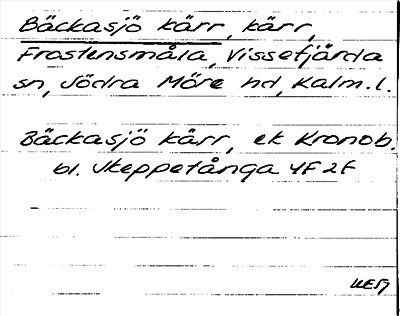 Bäckasjö kärr, kärr,
Frostensmåla, Vissefjärda
sn, Södra Möre hd, Kalm. l.
Bäckasjö kärr, ek Kronob.
bl. Skeppetånga 4F 2f